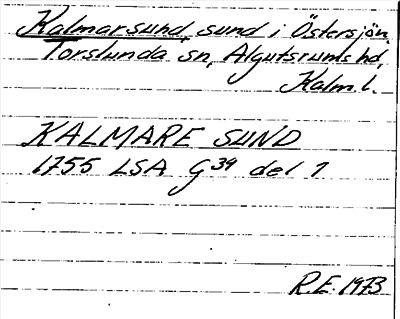 Kalmarsund, sund i Östersjön.
Torslunda sn, Algutsrums hd,
Kalm. l.
KALMARE SUND
1755 LSA G39 del 1
R.E. 1973